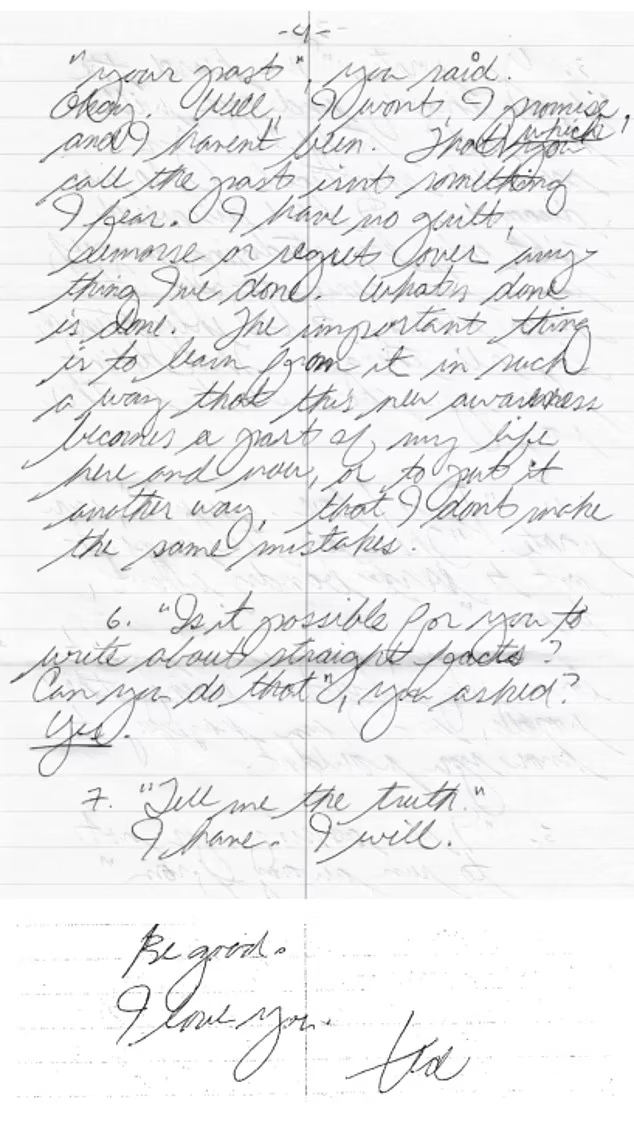 -4-
"your past", you said.
Okay. Well, I wont, I promise,
and I havent been. That which
you
call the past isnt something
I fear. I have no guilt,
remorse or regret over any-
thing I've done. What's done
is done. The important thing
is to learn from it in such
a way that this new awareness
becomes a part of my life
here and now, or, to put it
another way, that I dont make
the same mistakes.
6. "Is it possible for you to
write about straight facts?
Can you do that", you asked?
Yes.
7. "Tell me the truth."
I have. I will.
Be good.
I love you.
ted